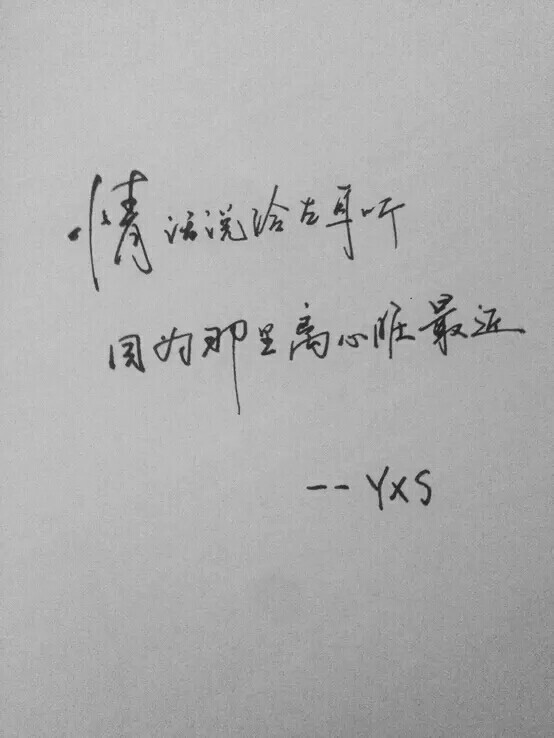 情话说给左耳听
因为那里离心脏最近
-- YXS